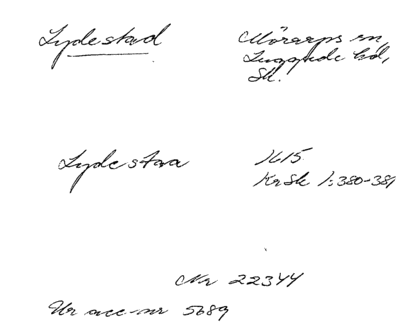 Lydestad
Mörarps sn,
Luggude hd,
Sk.
Lydestaa
1615.
KrSk 1:380-381
Nr 22344
Ur acc-nr 5689